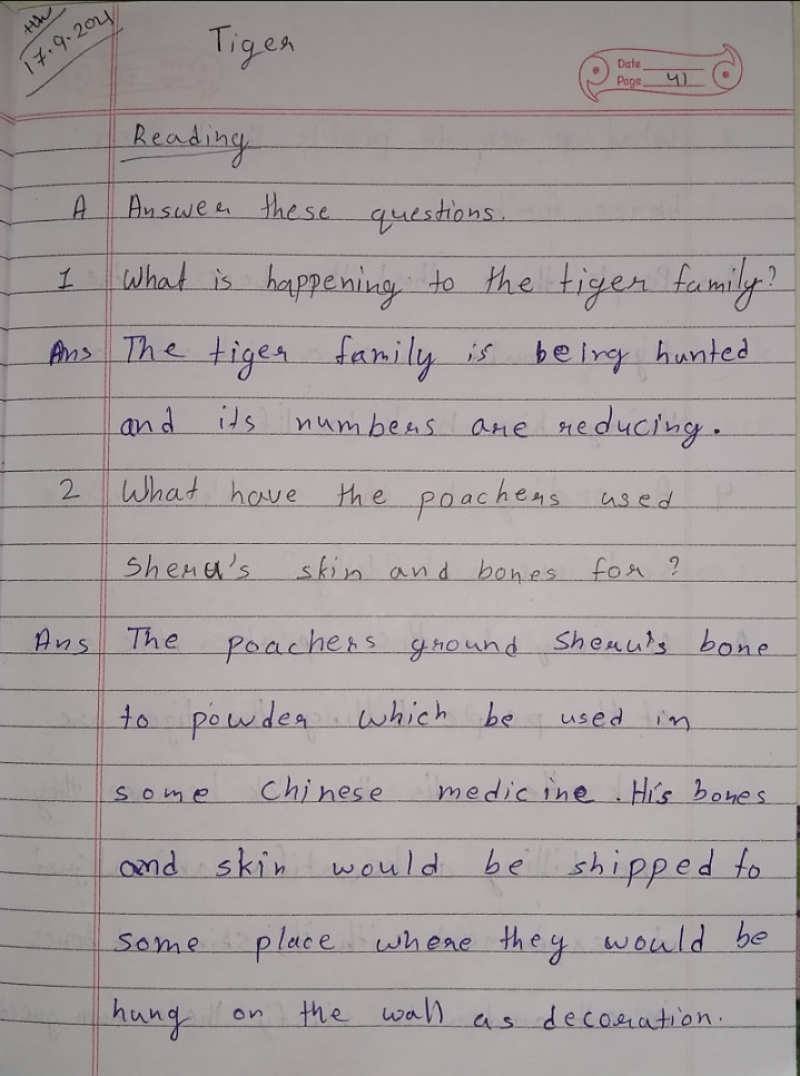 HW
17.9.2021
Tiger
Date
Page 41
Reading
A Answer these questions.
1 What is happening to the tiger family?
Ans The tiger family is being hunted
and its numbers are reducing.
2 What have the poachers used
Sheru's skin and bones for?
Ans The poachers ground Sheru's bone
to powder which be used in
some Chinese medicine. His bones
and skin would be shipped to
some place where they would be
hung on the wall as decoration.